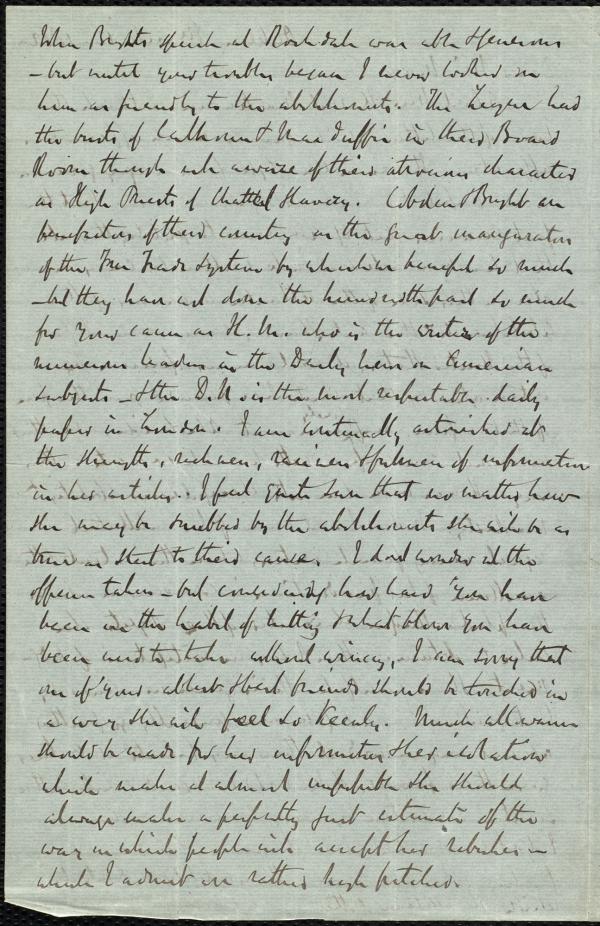 John Bright's speech at Rochdale was able & generous
– but until your troubles began I never looked on
him as friendly to the abolitionists. The League had
the busts of Calhoun & MacDuffie in their Board
Room though well aware of their atrocious character
as High Priests of Chattel Slavery. Cobden & Bright are
benefactors of their country as the great inaugurators
of the Free Trade system by which we benefit so much
– but they have not done the hundredth part so much
for your cause as H. M. who is the writer of the
numerous leaders in the Daily News on American
subjects – & the D. N. is the most respectable daily
paper in London. I am continually astonished at
the strength, richness, raciness & fulness of information
in her articles. I feel quite sure that no matter how
she may be snubbed by the abolitionists she will be as
true as steel to their cause. I don't wonder at the
offence taken – but considering how hard you have
been in the habit of hitting & what blows you have
been used to take without wincing, I am sorry that
one of your ablest & best friends should be touched in
a way she will feel so keenly. Much allowance
should be made for her information & her isolation
which make it almost impossible she should
always make a perfectly just estimate of the
way in which people will accept her rebukes –
which I admit are rather high pitched.